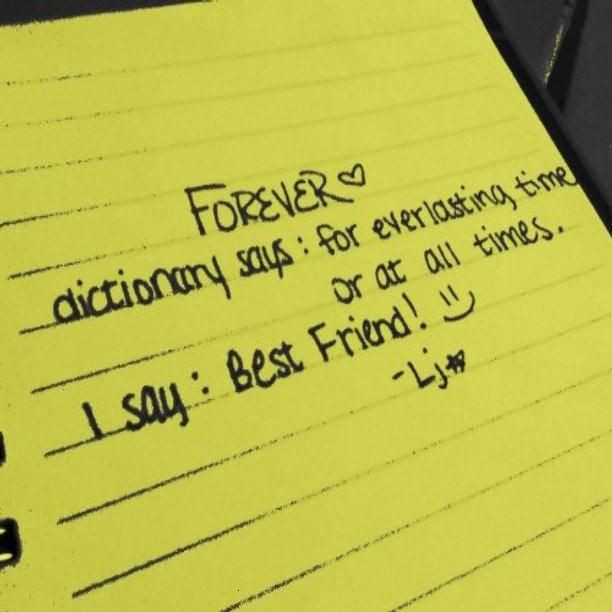 FOREVER ♡
dictionary says : for everlasting time
or at all times.
I say : Best Friend! :)
-Lj☆